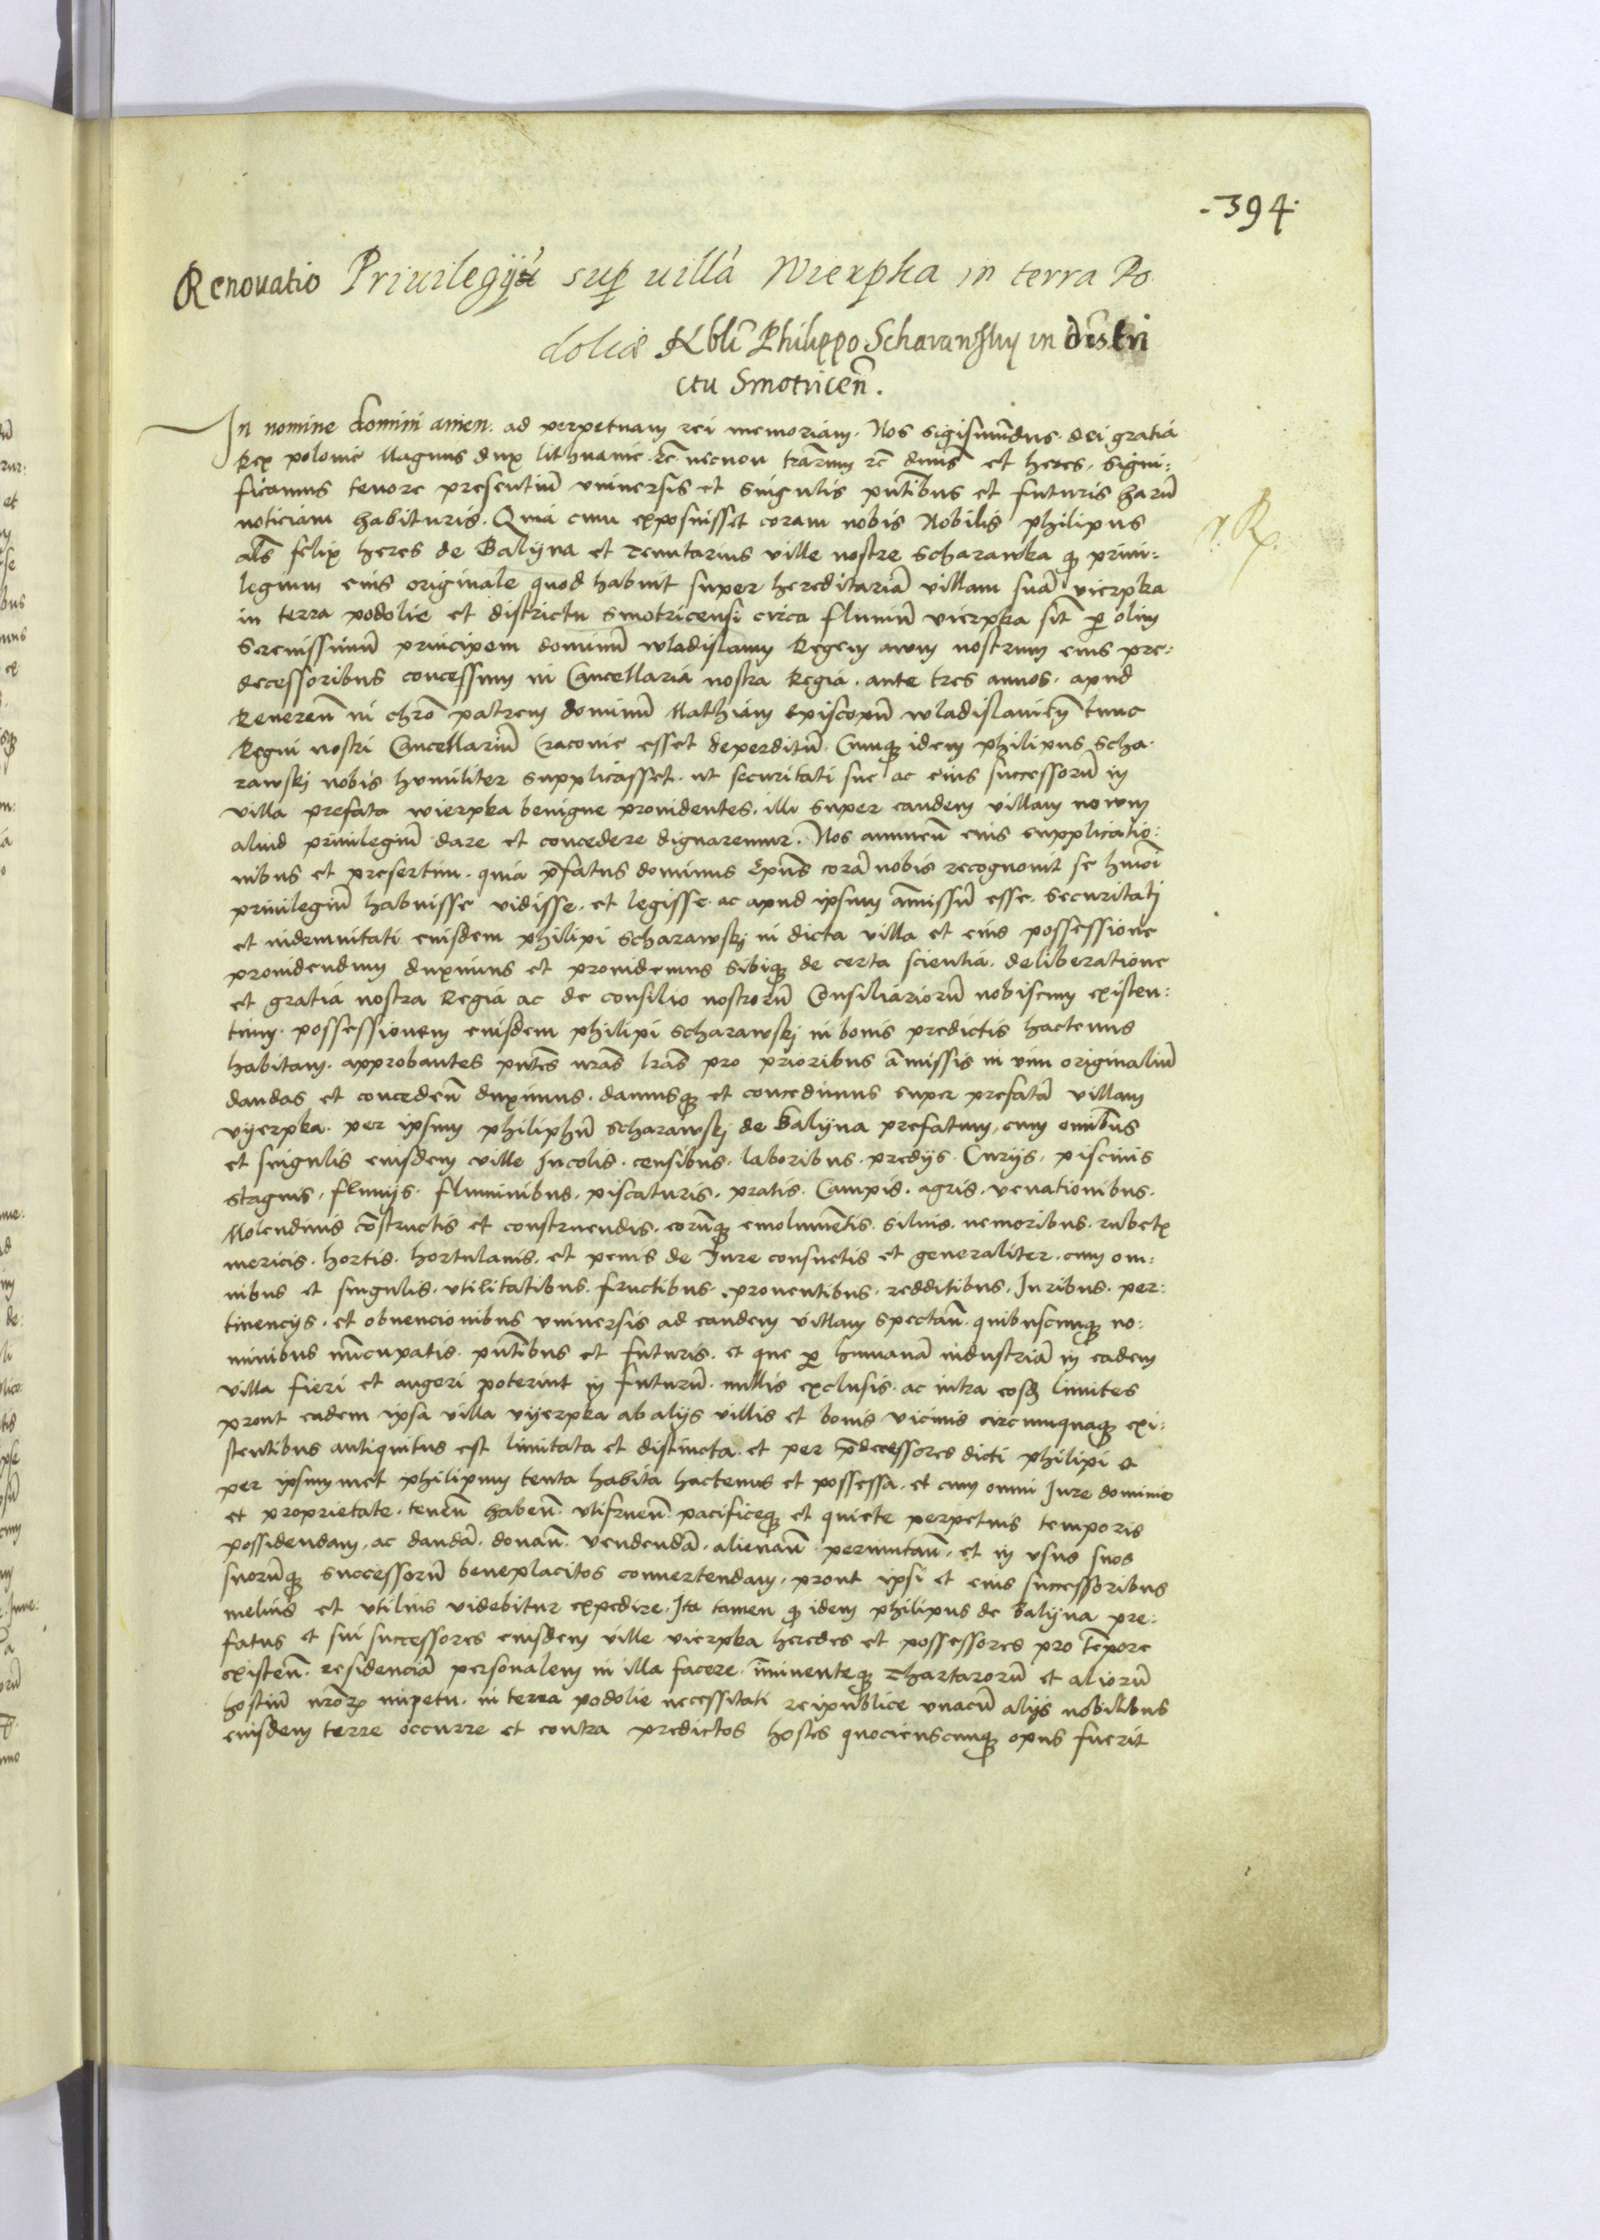 -394-
Renouatio Priuilegÿ sup uillā Wierpka in terra Po
doliæ Nbli Philippo Scharawsky in distri
ctu Smotricen̄.
In nomine domini amen. ad perpetuam rei memoriam. Nos sigismūdus dei gratia
Rex polonie Magnus dux lithuanie rc̄ necnon trārum rc̄ dnūs et heres. signi:
ficamus tenore presentiū vniuersis et singulis pn̄tibus et futuris harū
noticiam habituris. Quia cum exposuisset coram nobis Nobilis philipus
als̄ felix heres de Balyna et tenutarius ville nostre scharawka q priui:
legium eius originale quod habuit super hereditariā villam suā vierpka
in terra podolie et districtu smotricensi circa fluuiū vierpka sit̄ p olim
Serenissimū principem dominū wladislaum Regem auum nostrum eius pre:
decessoribus concessum in Cancellaria nostra Regia. ante tres annos. apud
Reueren̄ in chrō patrem dominū Mathiam episcopū wladislauien̄ tunc
Regni nostri Cancellariū Cracouie esset deperditū. Cumq idem philipus scha:
rawskj nobis humiliter supplicasset. ut securitati sue ac eius successorū in
villa prefata wierpka benigne prouidentes. illi super eandem villam nouum
aliud priuilegiū dare et concedere dignaremur. Nos annuen̄ eius supplicatio:
nibus et presertim. quia p̄fatus dominus Ep̄us corā nobis recognouit se hm̄oi
priuilegiū habuisse vidisse. et legisse. ac apud ipsum āmissū esse. securitatj
et indemnitati eiusdem philipi scharawskj in dicta villa et eius possessione
prouidendum duximus et prouidemus sibiq de certa scientia. deliberatione
et gratia nostra Regia ac de consilio nostrorū Consiliariorū nobiscum existen:
tium. possessionem eiusdem philipi scharawskj in bonis predictis hactenus
habitam. approbantes pn̄tes nr̄as lrās pro prioribus āmissis in vim originaliū
dandas et conceden̄ duximus. damusq et concedimus super prefatā villam
vyerpka. per ipsum philiphū scharawskj de Balyna prefatum, cum omībus
et singulis eiusdem ville Incolis. censibus. laboribus. predÿs. Curÿs. piscinis
stagnis. fluuÿs. fluminibus. piscaturis. pratis. Campis. agris. venationibus.
Molendinis cōstructis et construendis. eorūq emolumētis. siluis. nemoribus. rubetx
mericis. hortis. hortulanis. et penis de Iure consuetis et generaliter. cum om:
nibus et singulis. vtilitatibus. fructibus. prouentibus. redditibus. Iuribus. per:
tinencÿs. et obuencionibus vniuersis ad eandem villam spectan̄. quibuscunq no:
minibus nūcupatis. pn̄tibus et futuris. et que p humanā industriā in eadem
villa fieri et augeri poterint in futurū. nullis exclusis. ac intra eosd limites
prout eadem ipsa villa vyerpka ab alÿs villis et bonis vicinis circumquaq exi:
stentibus antiquitus est limitata et distincta. et per p̄decessores dicti philipi et
per ipsummet philipum tenta habita hactenus et possessa. et cum omni Iure dominio
et proprietate. tenen̄ haben̄. vtifruen̄. pacificeq et quiete perpetuis temporis
possidendam. ac dandā. donan̄. vendendā. alienan̄. permutan̄. et in vsus suos
suorūq successorū beneplacitos conuertendam. prout ipsi et eius successoribus
melius et vtilius videbitur expedire. Ita tamen q idem philipus de Balyna pre:
fatus et sui successores eiusdem ville vierpka heredes et possessores pro tēpore
existen̄. residenciā personalem in illa facere. īminenteq thartarorū et aliorū
hostiū nrōrx impetu. in terra podolie necessitati reipublice vnacū alÿs nobilibus
eiusdem terre occurre et contra predictos hostes quocienscunq opus fuerit